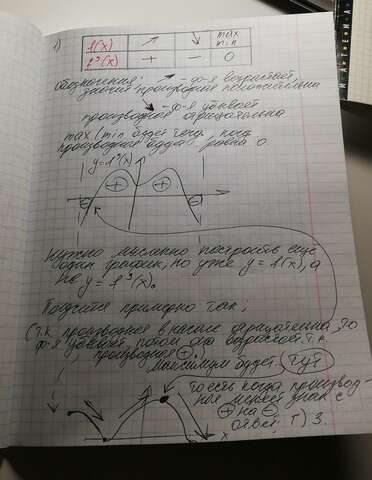 1)
f(x) ↗ ↘ max min
f'(x) + − 0
обозначения: ↗ - ф-я возрастает,
значит производная положительна
↘ - ф-я убывает
производная отрицательна
max/min будет тогда, когда
производная будет равна 0.
y=f'(x)
− + + −
Нужно мысленно построить ещё
один график, но уже y=f(x), а
не y=f'(x).
Получится примерно так:
(т.к. производная в начале отрицательна, то
ф-я убывает, потом она возрастает т.к
производная +.
Максимум будет тут
То есть когда производ-
ная меняет знак с
+ на −
x
ответ: Г) 3.